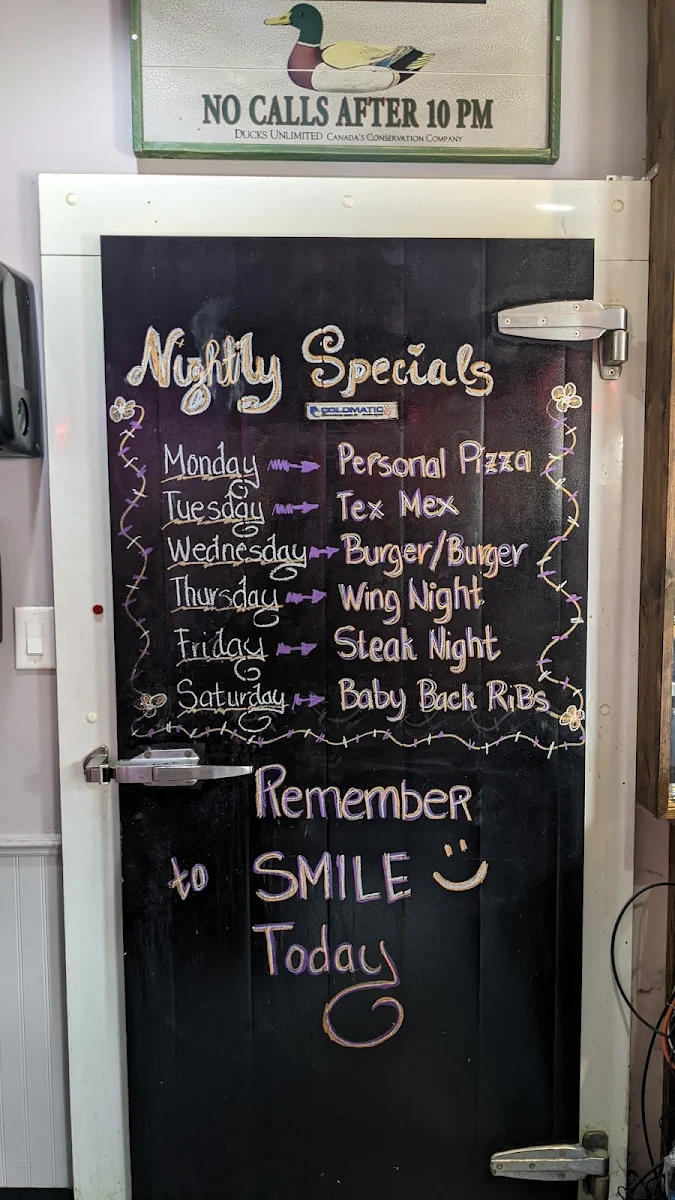 NO CALLS AFTER 10 PM
DUCKS UNLIMITED CANADA'S CONSERVATION COMPANY
Nightly Specials
COLDMATIC
Monday Personal Pizza
Tuesday Tex Mex
Wednesday Burger/Burger
Thursday Wing Night
Friday Steak Night
Saturday Baby Back RiBs
RemembeR
to SMILE
Today